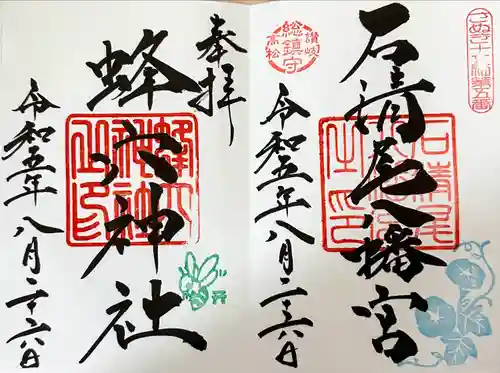 さぬき十五社第五番
石清尾八幡宮
讃岐
総鎮守
高松
令和五年八月二十六日
奉拝
蜂穴神社
令和五年八月二十六日